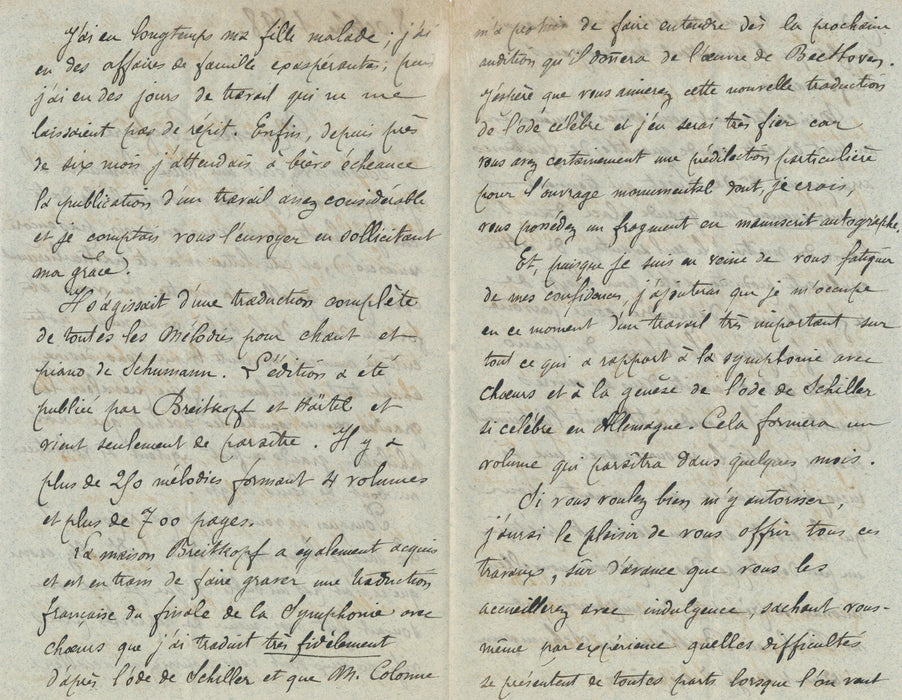 J'ai eu longtemps ma fille malade ; j'ai
eu des affaires de famille exaspérantes ; puis
j'ai eu des jours de travail qui ne me
laissaient pas de répit. Enfin, depuis près
de six mois j'attendais à brève échéance
la publication d'un travail assez considérable
et je comptais vous l'envoyer en sollicitant
ma grâce.
Il s'agissait d'une traduction complète
de toutes les Mélodies pour chant et
piano de Schumann. L'édition a été
publiée par Breitkopf et Härtel et
vient seulement de paraître. Il y a
plus de 250 mélodies formant 4 volumes
et plus de 700 pages.
La maison Breitkopf a également acquis
et est en train de faire graver une traduction
française du finale de la Symphonie avec
chœurs que j'ai traduit très fidèlement
d'après l'ode de Schiller et que M. Colonne
m'a promis de faire entendre dès la prochaine
audition qu'il donnera de l'œuvre de Beethoven.
J'espère que vous aimerez cette nouvelle traduction
de l'ode célèbre et j'en serai très fier car
vous avez certainement une prédilection particulière
pour l'ouvrage monumental dont, je crois,
vous possédez un fragment en manuscrit autographe.
Et, puisque je suis en veine de vous fatiguer
de mes confidences, j'ajouterai que je m'occupe
en ce moment d'un travail très important sur
tout ce qui a rapport à la symphonie avec
chœurs et à la genèse de l'ode de Schiller
si célèbre en Allemagne. Cela formera un
volume qui paraîtra dans quelques mois.
Si vous voulez bien m'y autoriser,
j'aurai le plaisir de vous offrir tous ces
travaux, sûr d'avance que vous les
accueillerez avec indulgence, sachant vous-
même par expérience quelles difficultés
se présentent de toutes parts lorsque l'on veut